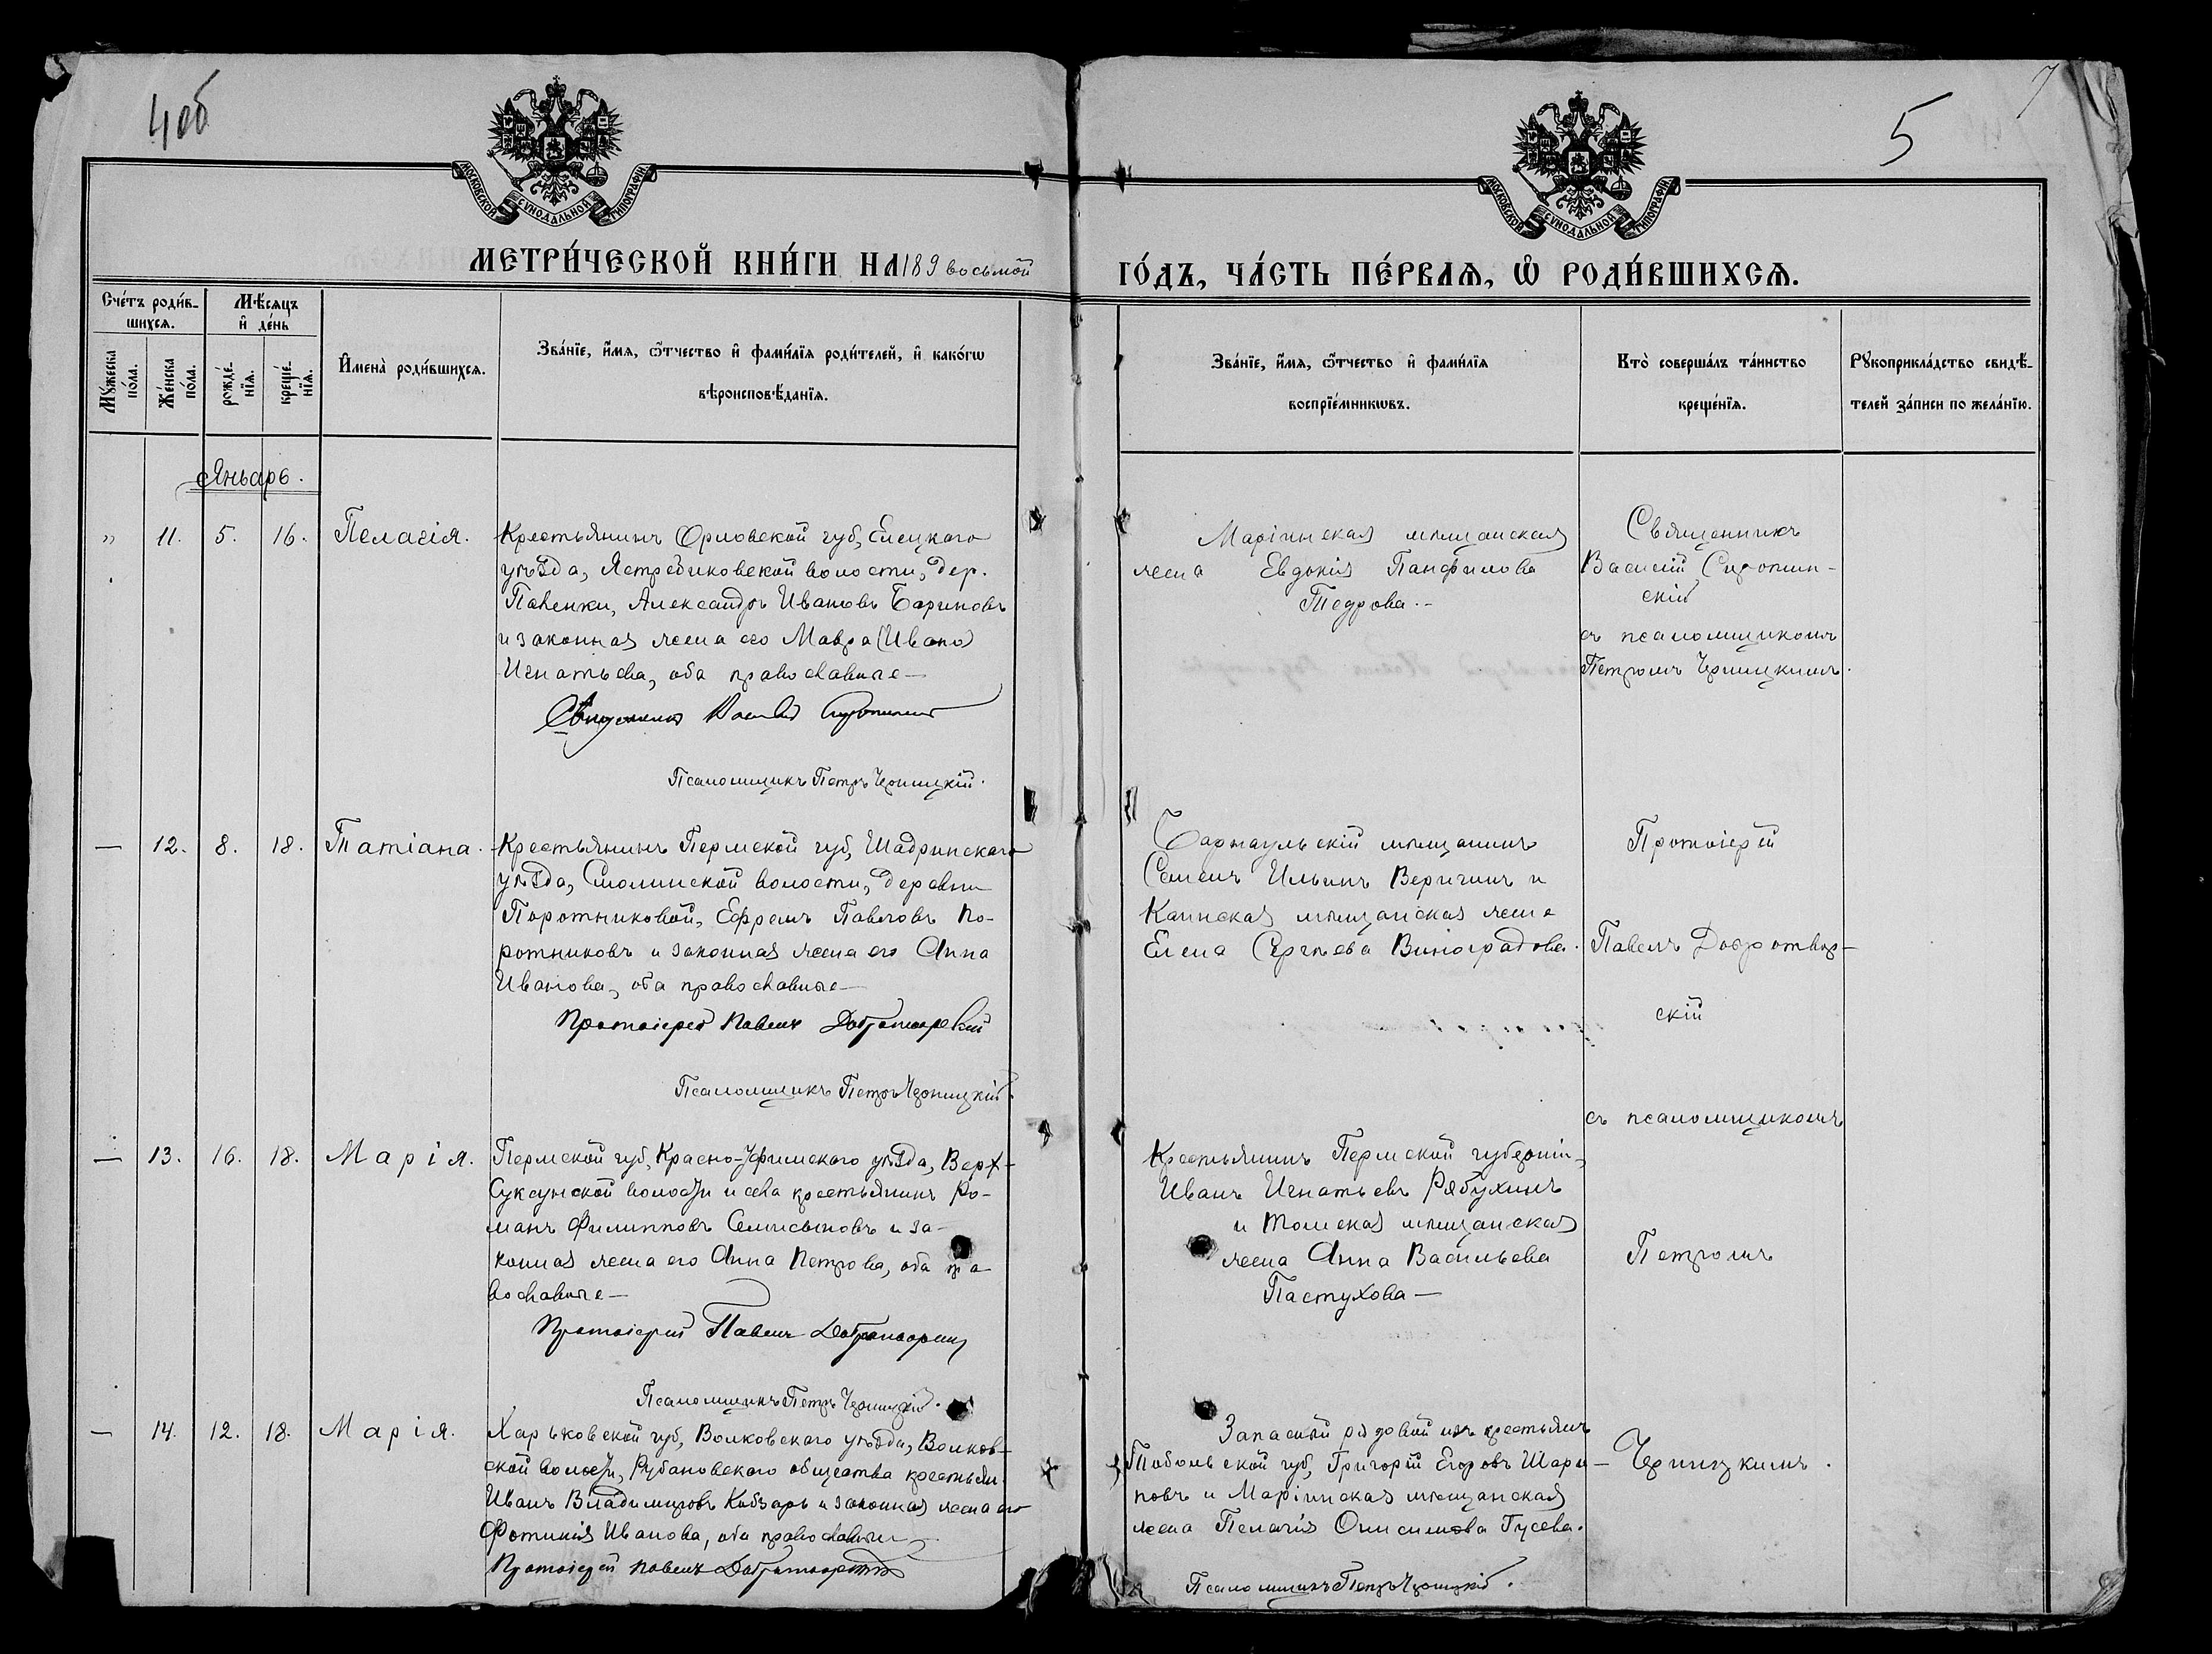 4об
5
7
МОСКОВСКОЙ СѴНОДАЛЬНОЙ ТИПОГРАФІИ.
МОСКОВСКОЙ СѴНОДАЛЬНОЙ ТИПОГРАФІИ.
МЕТРИ́ЧЕСКОЙ КНИ́ГИ НА 189 восьмой
ГО́ДЪ, ЧА́СТЬ ПЕ́РВАѦ, Ѽ РОДИ́ВШИХСѦ.
Сче́тъ роди́в-
шихсѧ.
Мѣ́сѧцъ
и҆ де́нь
Мꙋ́жеска
по́ла.
Же́нска
по́ла.
рожде́-
нїѧ.
креще́-
нїѧ.
И҆мена̀ роди́вшихсѧ.
Зва́нїе, и҆́мѧ, ѻ҆́тчество и҆ фами́лїѧ роди́телей, и҆ како́гѡ
вѣроисповѣ́данїѧ.
Зва́нїе, и҆́мѧ, ѻ҆́тчество и҆ фами́лїѧ
воспрїе́мникѡвъ.
Кто̀ соверша́лъ та́инство
креще́нїѧ.
Рꙋкоприкла́дство свидѣ́-
телей за́писи по жела́нїю.
Январь.
" 11. 5. 16. Пелагія.
Крестьянинъ Орловской губ, Елецкаго
уѣзда, Ястребиковской волости, дер.
Павенки, Александръ Ивановъ Бариновъ
и законная жена его Мавра (Ивано)
Игнатьева, оба православные —
Священникъ Василій Сиротинскій
Псаломщикъ Петръ Черницкій.
Маріинская мѣщанская
жена Евдокія Панфилова
Тедрова.-
Священникъ
Василій Сиротин-
скій
съ псаломщикомъ
Петромъ Черницкимъ.
— 12. 8. 18. Татіана.
Крестьянинъ Пермской губ, Шадринскаго
уѣзда, Смолинской волости, деревни
Поротниковой, Ефремъ Павловъ По-
ротниковъ и законная жена его Анна
Иванова, оба православные —
Протоіерей Павелъ Добротворскій
Псаломщикъ Петръ Черницкій.
Барнаульскій мѣщанинъ
Семенъ Ильинъ Веригинъ и
Каинская мѣщанская жена
Елена Сергѣева Виноградова.
Протоіерей
Павелъ Добротвор-
скій
съ псаломщикомъ
— 13. 16. 18. Марія.
Пермской губ, Красно-Уфимскаго уѣзда, Верх-
Суксунской волости и села крестьянинъ Ро-
манъ Филипповъ Семисыновъ и за-
конная жена его Анна Петрова, оба пра
вославные —
Протоіерей Павелъ Добротворскій
Псаломщикъ Петръ Черницкій.
Крестьянинъ Пермской губерніи,
Иванъ Игнатьевъ Рябухинъ
и Томская мѣщанская
жена Анна Васильева
Пастухова —
Петромъ
— 14. 12. 18. Марія.
Харьковской губ, Волковскаго уѣзда, Волков-
ской волости, Рубановскаго общества крестьян
Иванъ Владимировъ Кобзарь и законная жена его
Фотинія Иванова, оба православные
Протоіерей Павелъ Добротворскій
Запасной рядовой изъ крестьянъ
Тобольской губ, Григорій Егоровъ Шари-
повъ и Маріинская мѣщанская
жена Пелагія Онисимова Гусева.
Псаломщикъ Петръ Черницкій.
Черницкимъ.